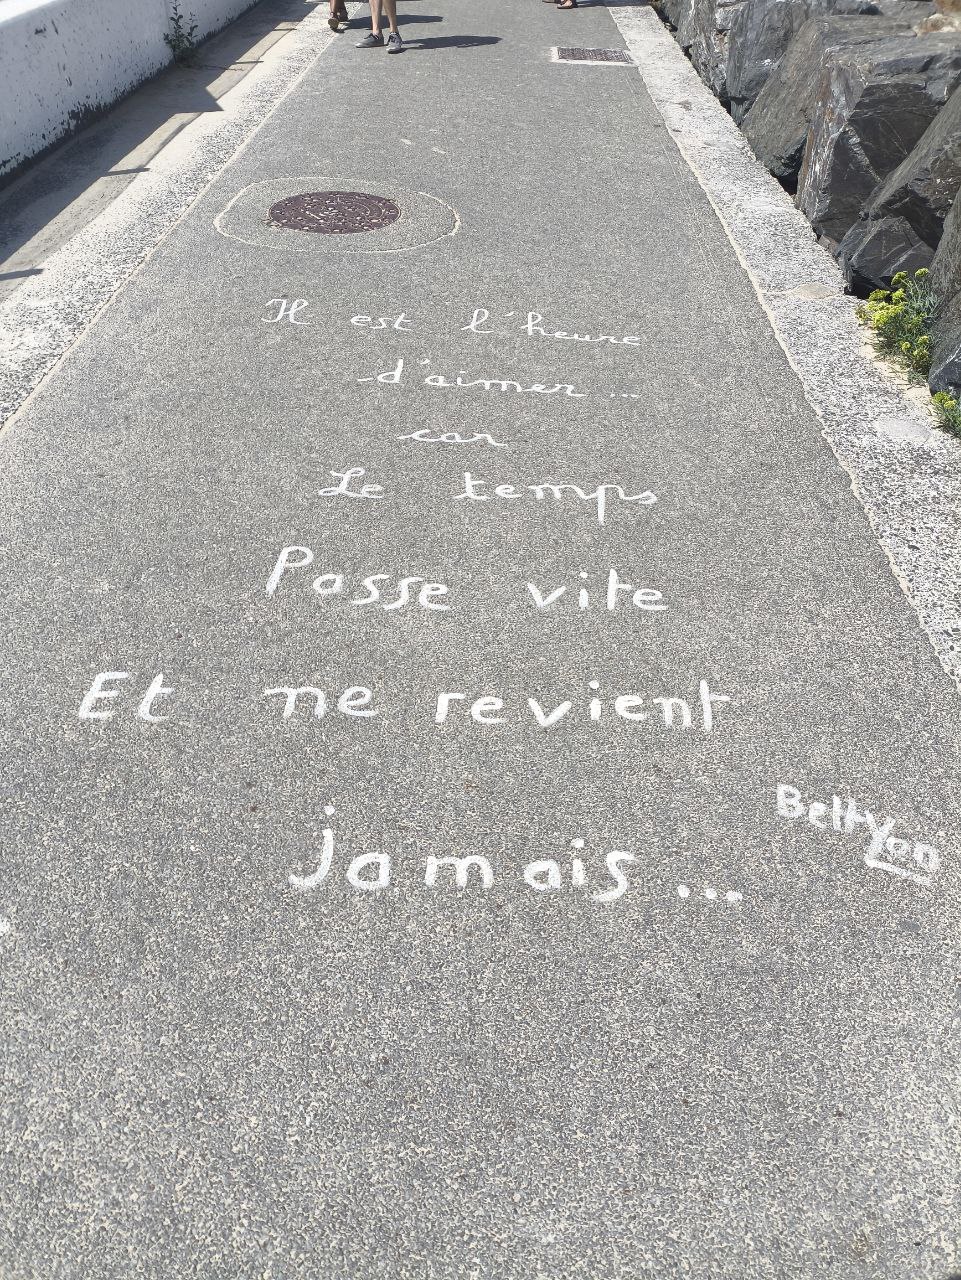 Il est l'heure
d'aimer...
car
Le temps
Passe vite
Et ne revient
jamais...